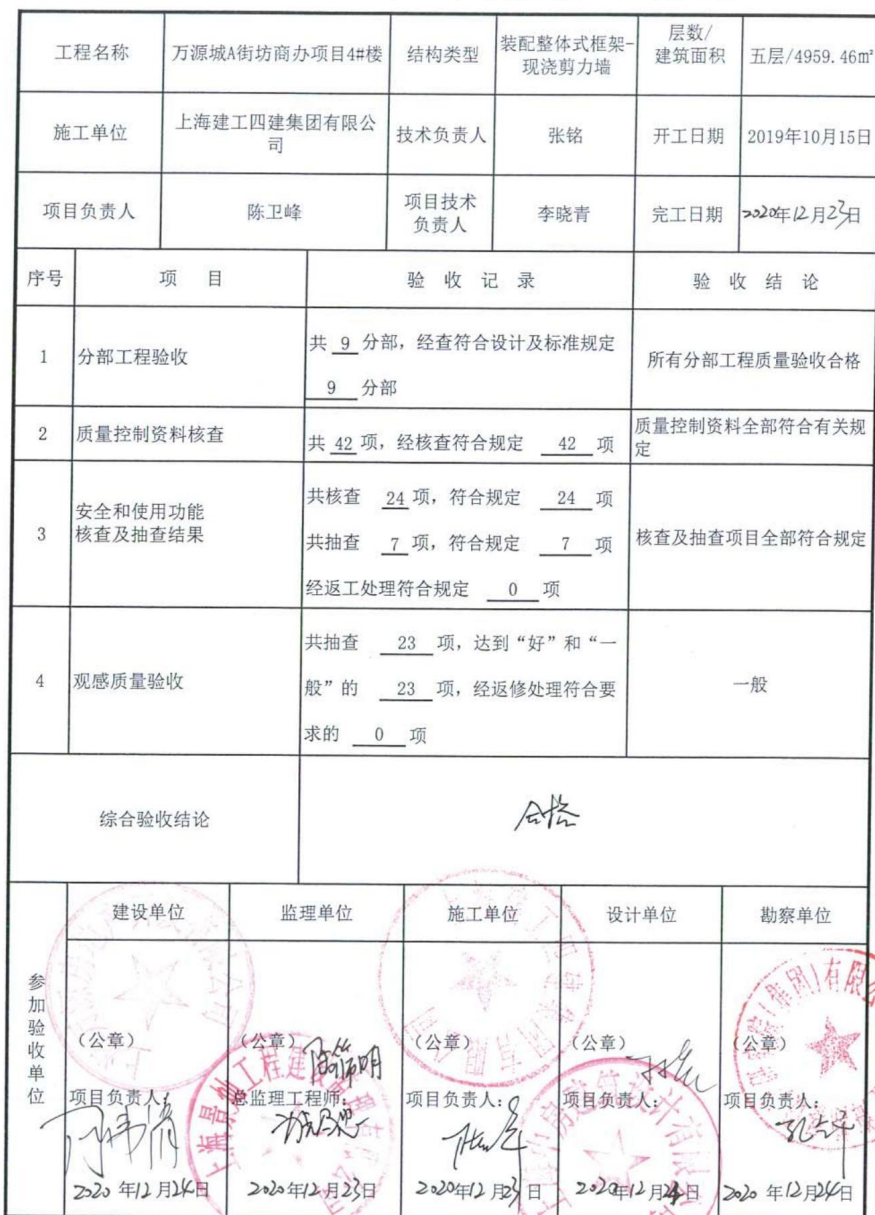 工程名称 万源城A街坊商办项目4#楼 结构类型 装配整体式框架-
现浇剪力墙 层数/
建筑面积 五层/4959.46m²
施工单位 上海建工四建集团有限公
司 技术负责人 张铭 开工日期 2019年10月15日
项目负责人 陈卫峰 项目技术
负责人 李晓青 完工日期 2020年12月23日
序号 项 目 验 收 记 录 验 收 结 论
1 分部工程验收 共 9 分部，经查符合设计及标准规定
9 分部 所有分部工程质量验收合格
2 质量控制资料核查 共 42 项，经核查符合规定 42 项 质量控制资料全部符合有关规
定
3 安全和使用功能
核查及抽查结果 共核查 24 项，符合规定 24 项
共抽查 7 项，符合规定 7 项
经返工处理符合规定 0 项 核查及抽查项目全部符合规定
4 观感质量验收 共抽查 23 项，达到“好”和“一
般”的 23 项，经返修处理符合要
求的 0 项 一般
综合验收结论 合格
参加验收单位
建设单位 监理单位 施工单位 设计单位 勘察单位
（公章） （公章） （公章） （公章） （公章）
项目负责人： 总监理工程师： 项目负责人： 项目负责人： 项目负责人：
2020 年12月24日 2020年12月23日 2020年12月23日 2020年12月24日 2020 年12月24日